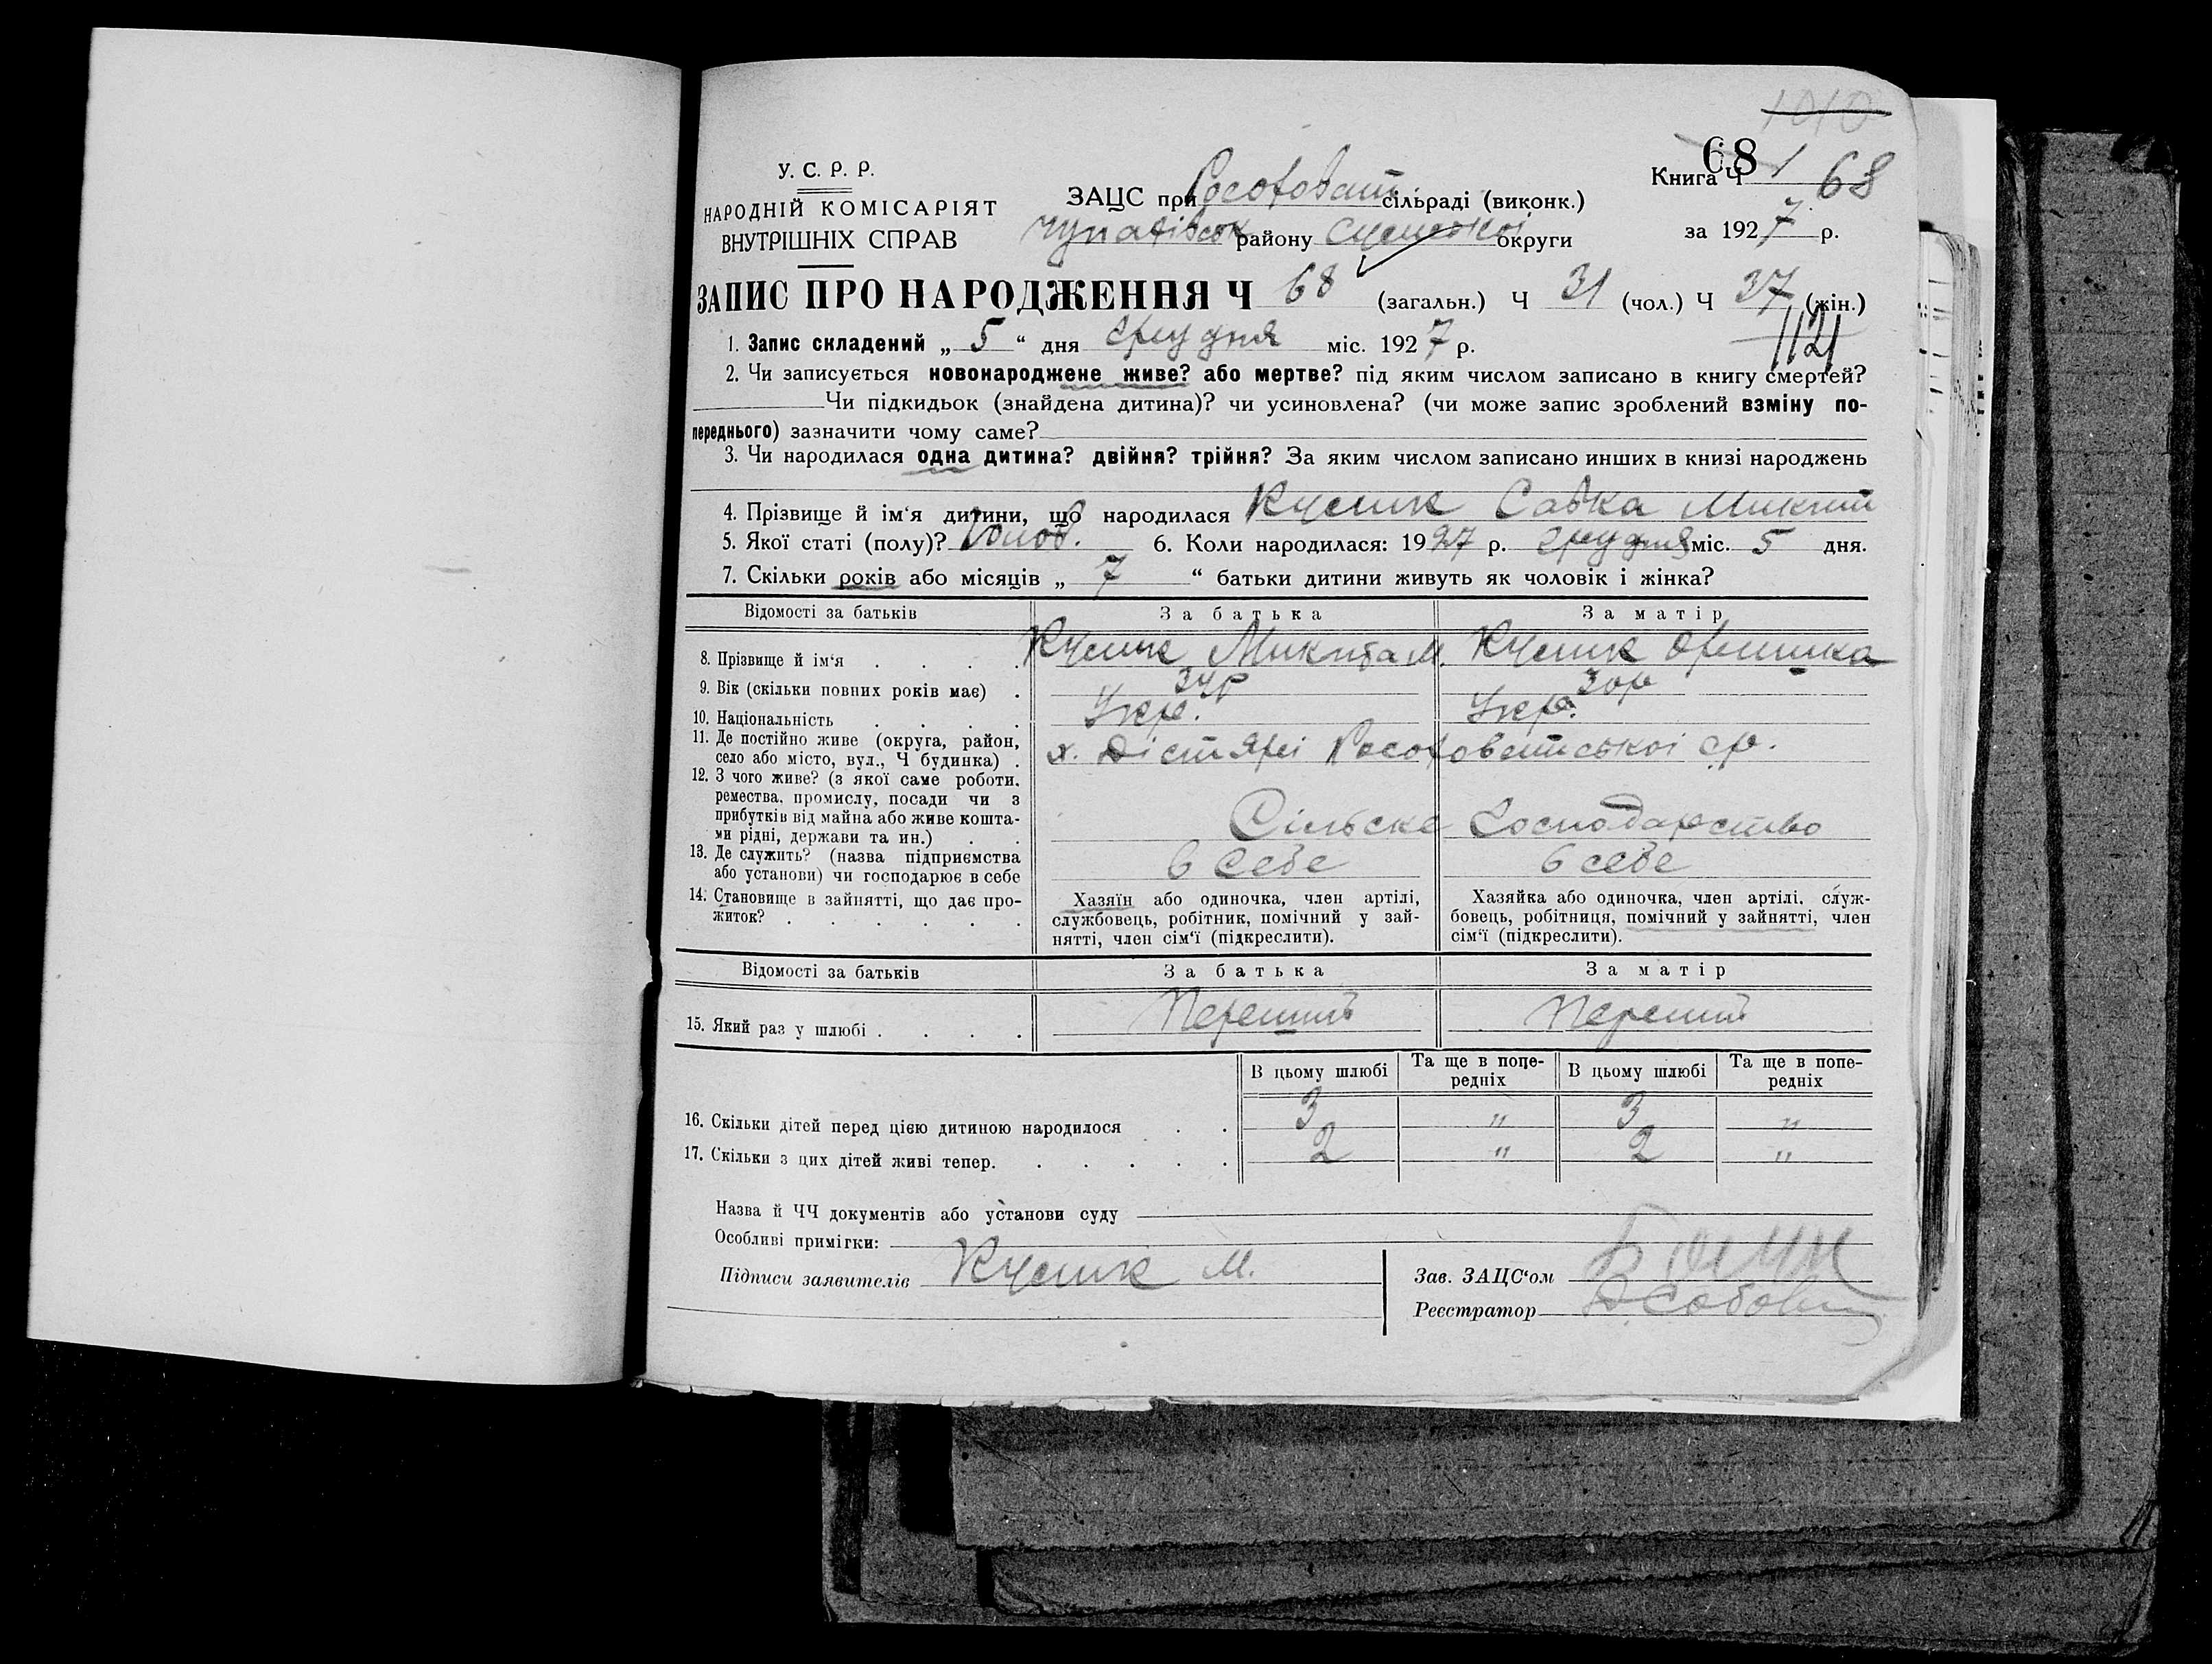 1010
У. С. Р. Р.
НАРОДНІЙ КОМІСАРІЯТ
ВНУТРІШНІХ СПРАВ
ЗАЦС при сільраді (виконк.)
району Сумської округи
68
Книга Ч 1 68
за 1927 р.
ЗАПИС ПРО НАРОДЖЕННЯ Ч 68 (загальн.) Ч 31 (чол.) Ч 37 (жін.)
1. Запис складений „ 5 “ дня грудня міс. 1927 р.
2. Чи записується новонароджене живе? або мертве? під яким числом записано в книгу смертей?
Чи підкидьок (знайдена дитина)? чи усиновлена? (чи може запис зроблений взміну по-
переднього) зазначити чому саме?
3. Чи народилася одна дитина? двійня? трійня? За яким числом записано инших в книзі народжень
4. Прізвище й ім‘я дитини, що народилася Кусик Савка Микит
5. Якої статі (полу)? Чолов. 6. Коли народилася: 1927 р. грудня міс. 5 дня.
7. Скільки років або місяців „ 7 “ батьки дитини живуть як чоловік і жінка?
Відомості за батьків За батька За матір
8. Прізвище й ім‘я . . . . Кусик Микита М. Кусик Оришка
9. Вік (скільки повних років має) . 34р 30р
10. Національність . . . . Укр. Укр.
11. Де постійно живе (округа, район,
село або місто, вул., Ч будинка) . х. с.р.
12. З чого живе? (з якої саме роботи,
ремества, промислу, посади чи з
прибутків від майна або живе кошта-
ми рідні, держави та ин.) . . Сільске Господарство
13. Де служить? (назва підприємства
або установи) чи господарює в себе в себе в себе
14. Становище в зайнятті, що дає про-
житок? . . . . . .
Хазяїн або одиночка, член артілі,
службовець, робітник, помічний у зай-
нятті, член сім‘ї (підкреслити).
Хазяйка або одиночка, член артілі, служ-
бовець, робітниця, помічний у зайнятті, член
сім‘ї (підкреслити).
Відомості за батьків За батька За матір
15. Який раз у шлюбі . . . . Перший Перший
В цьому шлюбі Та ще в попе-
редніх В цьому шлюбі Та ще в попе-
редніх
16. Скільки дітей перед цією дитиною народилося . . 3 " 3 "
17. Скільки з цих дітей живі тепер. . . . . . 2 " 2 "
Назва й ЧЧ документів або установи суду
Особливі примітки:
Підписи заявителів Кусик М.
Зав. ЗАЦС‘ом
Реєстратор